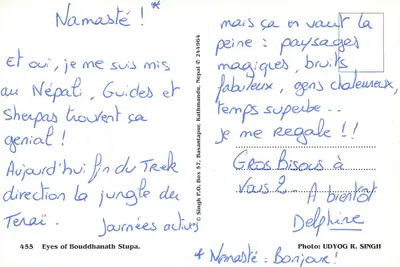 Namasté ! *
Et oui, je me suis mis
au Népali, Guides et
Sherpas trouvent ça
genial !
Aujourd'hui fin du Trek
direction la jungle du
Teraï. Journées actives
mais ça en vaut la
peine : paysages
magiques, bruits
fabuleux, gens chaleureux,
temps superbe..
je me régale !!
Gros bisous à
vous 2. A bientôt
Delphine
* Namasté : Bonjour !
© Singh P.O. Box 57, Basantapur, Kathmandu, Nepal © 244964
455 Eyes of Bouddhanath Stupa.
Photo: UDYOG R. SINGH